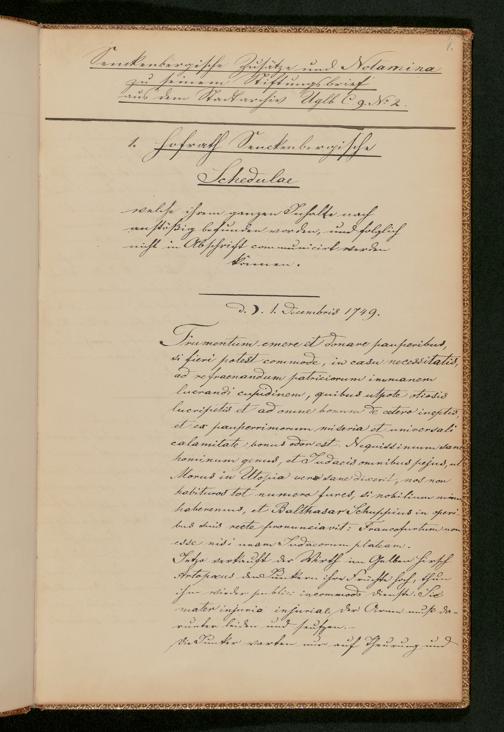 1.
Senckenbergische Zusätze und Notamina
zu seinem Stiftungsbrief
aus dem Stadtarchiv Uglb C 9 № 2.
1. Hofrath Senckenbergische
Schedulae
welche ihrem ganzen Inhalte nach
anstößig befunden worden, und folglich
nicht in Abschrift communicirt werden
können.
d. ☽. 1. Decembris 1749.
Frumentum emere et donare pauperibus,
si fieri potest commode, in casu necessitatis,
ad refraenandum patriciorum inmanem
lucrandi cupidinem, quibus utpote otiosis
lucripetis et ad omne bonum de cetero ineptis,
et ex pauperrimorum miseria et universali
calamitate bonus odor est. Nequissimum sane
hominum genus, et Judaeis omnibus pejus, ut
Morus in Utopia vere sane dixerit, nos non
habituros tot numero fures, si nobilium
haberemus, et Balthasar Schuppius in operi
bus suis recte pronunciavit: Francofurtum non
esse nisi unam Judaeorum plateam.
Jetzo verkauft der Wirth im Gelben Hirsch
den Junkern ihre Früchte hoch, thun
ihm wieder publice incommode dienste. Sic
mater injuria injuriae, der Arme muß da-
runter leiden und seufzen.
die Junker warten nur auf Theurung und